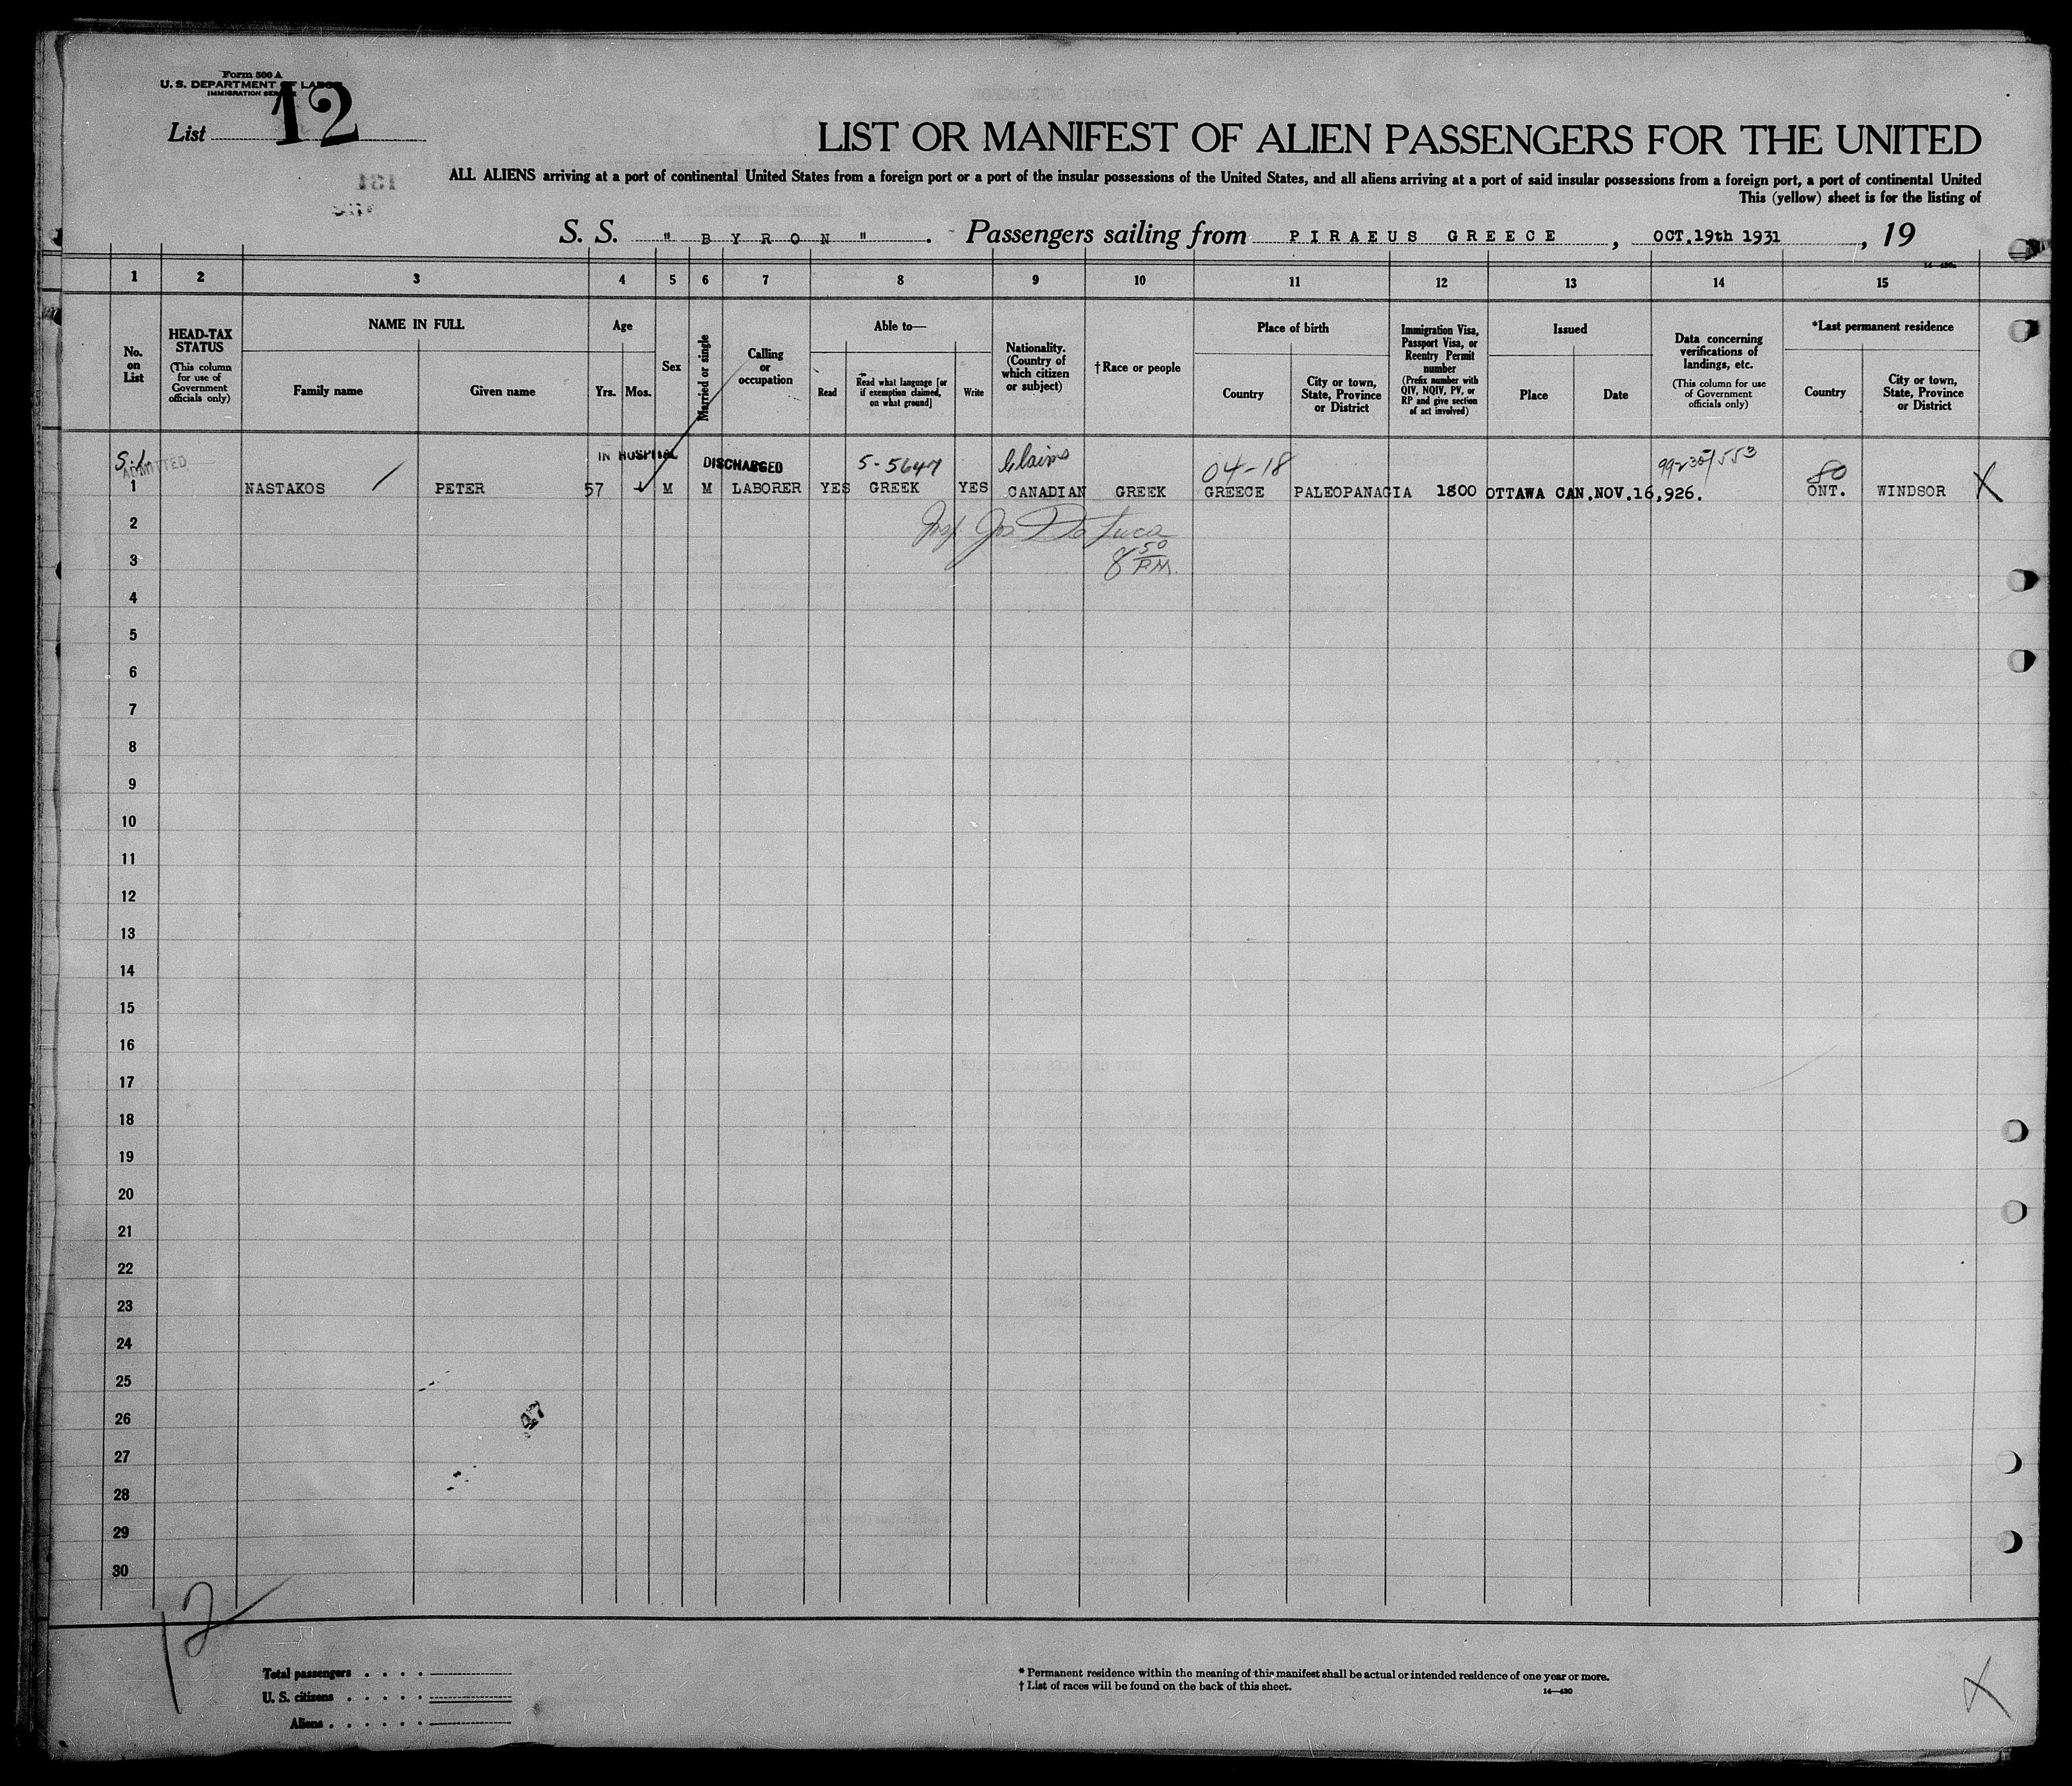 Form 500 A
U. S. DEPARTMENT OF LABOR
IMMIGRATION SERVICE
List 12
LIST OR MANIFEST OF ALIEN PASSENGERS FOR THE UNITED
ALL ALIENS arriving at a port of continental United States from a foreign port or a port of the insular possessions of the United States, and all aliens arriving at a port of said insular possessions from a foreign port, a port of continental United
This (yellow) sheet is for the listing of
S. S. " B Y R O N " . Passengers sailing from P I R A E U S G R E E C E , OCT.19th 1931 , 19
1 2 3 4 5 6 7 8 9 10 11 12 13 14 15
No. on List
HEAD-TAX STATUS
(This column for use of Government officials only)
NAME IN FULL
Family name
Given name
Age
Yrs. Mos.
Sex
Married or single
Calling or occupation
Able to—
Read
Read what language [or if exemption claimed, on what ground]
Write
Nationality. (Country of which citizen or subject)
†Race or people
Place of birth
Country
City or town, State, Province or District
Immigration Visa, Passport Visa, or Reentry Permit number
(Prefix number with QIV, NQIV, PV, or RP and give section of act involved)
Issued
Place
Date
Data concerning verifications of landings, etc.
(This column for use of Government officials only)
*Last permanent residence
Country
City or town, State, Province or District
S.I. ADMITTED IN HOSPITAL DISCHARGED 5-5647 Claims 04-18 80
1 NASTAKOS PETER 57 M M LABORER YES GREEK YES CANADIAN GREEK GREECE PALEOPANAGIA 1800 OTTAWA CAN.NOV.16,926. ONT. WINDSOR X
2 Insp. Jos De Luca
3 8 50 P.M.
4
5
6
7
8
9
10
11
12
13
14
15
16
17
18
19
20
21
22
23
24
25
26 47
27
28
29
30
12
Total passengers . . . .
U. S. citizens . . . . .
Aliens . . . . . .
* Permanent residence within the meaning of this manifest shall be actual or intended residence of one year or more.
† List of races will be found on the back of this sheet.
14—430
X